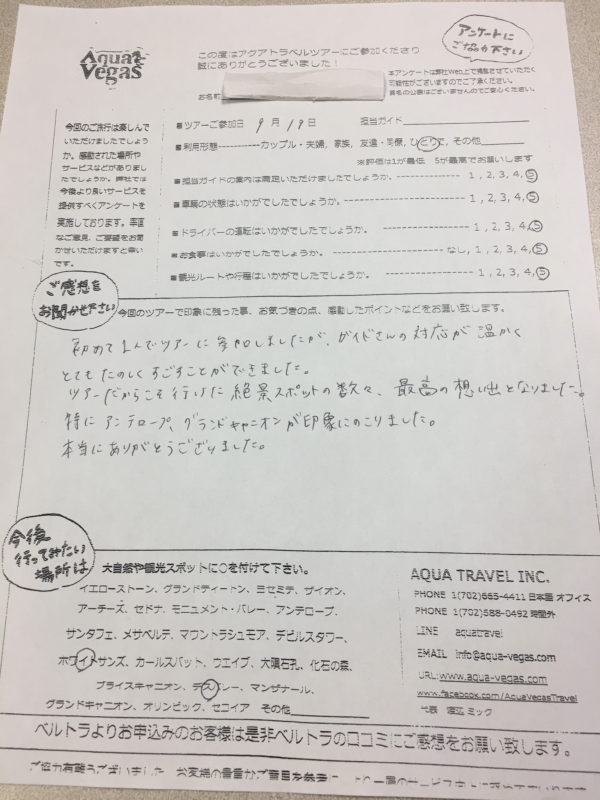 Aqua Vegas
この度はアクアトラベルツアーにご参加くださり
誠にありがとうございました！
アンケートに
ご協力下さい
本アンケートは弊社Web上で掲載させていただく
可能性がございますのでご了承ください。
お名前
今回のご旅行は楽しんで
いただけましたでしょう
か。感動された場所や
サービスなどがありまし
たでしょうか。弊社では
今後より良いサービスを
提供すべくアンケートを
実施しております。率直
なご意見、ご要望をお聞
かせいただけますと幸い
です。
■ツアーご参加日 9月19日 担当ガイド
■利用形態-----------カップル・夫婦、家族、友達・同僚、ひとりで、その他
※評価は1が最低 5が最高でお願いします
■担当ガイドの案内は満足いただけましたでしょうか。 ---------------- 1,2,3,4,5
■車両の状態はいかがでしたでしょうか。 ---------------- 1,2,3,4,5
■ドライバーの運転はいかがでしたでしょうか。 ---------------- 1,2,3,4,5
■お食事はいかがでしたでしょうか。 ---------------- なし,1,2,3,4,5
■観光ルートや行程はいかがでしたでしょうか。 ---------------- 1,2,3,4,5
ご感想を
お聞かせ下さい
今回のツアーで印象に残った事、お気づきの点、感動したポイントなどをお願い致します。
初めて1人でツアーに参加しましたが、ガイドさんの対応が温かく
とてもたのしくすごすことができました。
ツアーだからこそ行けた絶景スポットの数々、最高の想い出となりました。
特にアンテロープ、グランドキャニオンが印象にのこりました。
本当にありがとうございました。
今後
行ってみたい
場所は
大自然や観光スポットに○を付けて下さい。
イエローストーン、グランドティートン、ヨセミテ、ザイオン、
アーチーズ、セドナ、モニュメント・バレー、アンテロープ、
サンタフェ、メサベルデ、マウントラシュモア、デビルスタワー、
ホワイトサンズ、カールスバット、ウエイブ、大隕石孔、化石の森、
ブライスキャニオン、デスバレー、マンザナール、
グランドキャニオン、オリンピック、セコイア その他
AQUA TRAVEL INC.
PHONE 1(702)665-4411 日本国 オフィス
PHONE 1(702)588-0492 時間外
LINE aquatravel
EMAIL info@aqua-vegas.com
URL: www.aqua-vegas.com
www.facebook.com/AquaVegasTravel
代表 ミック
ベルトラよりお申込みのお客様は是非ベルトラの口コミにご感想をお願い致します。
ご協力有難うございました